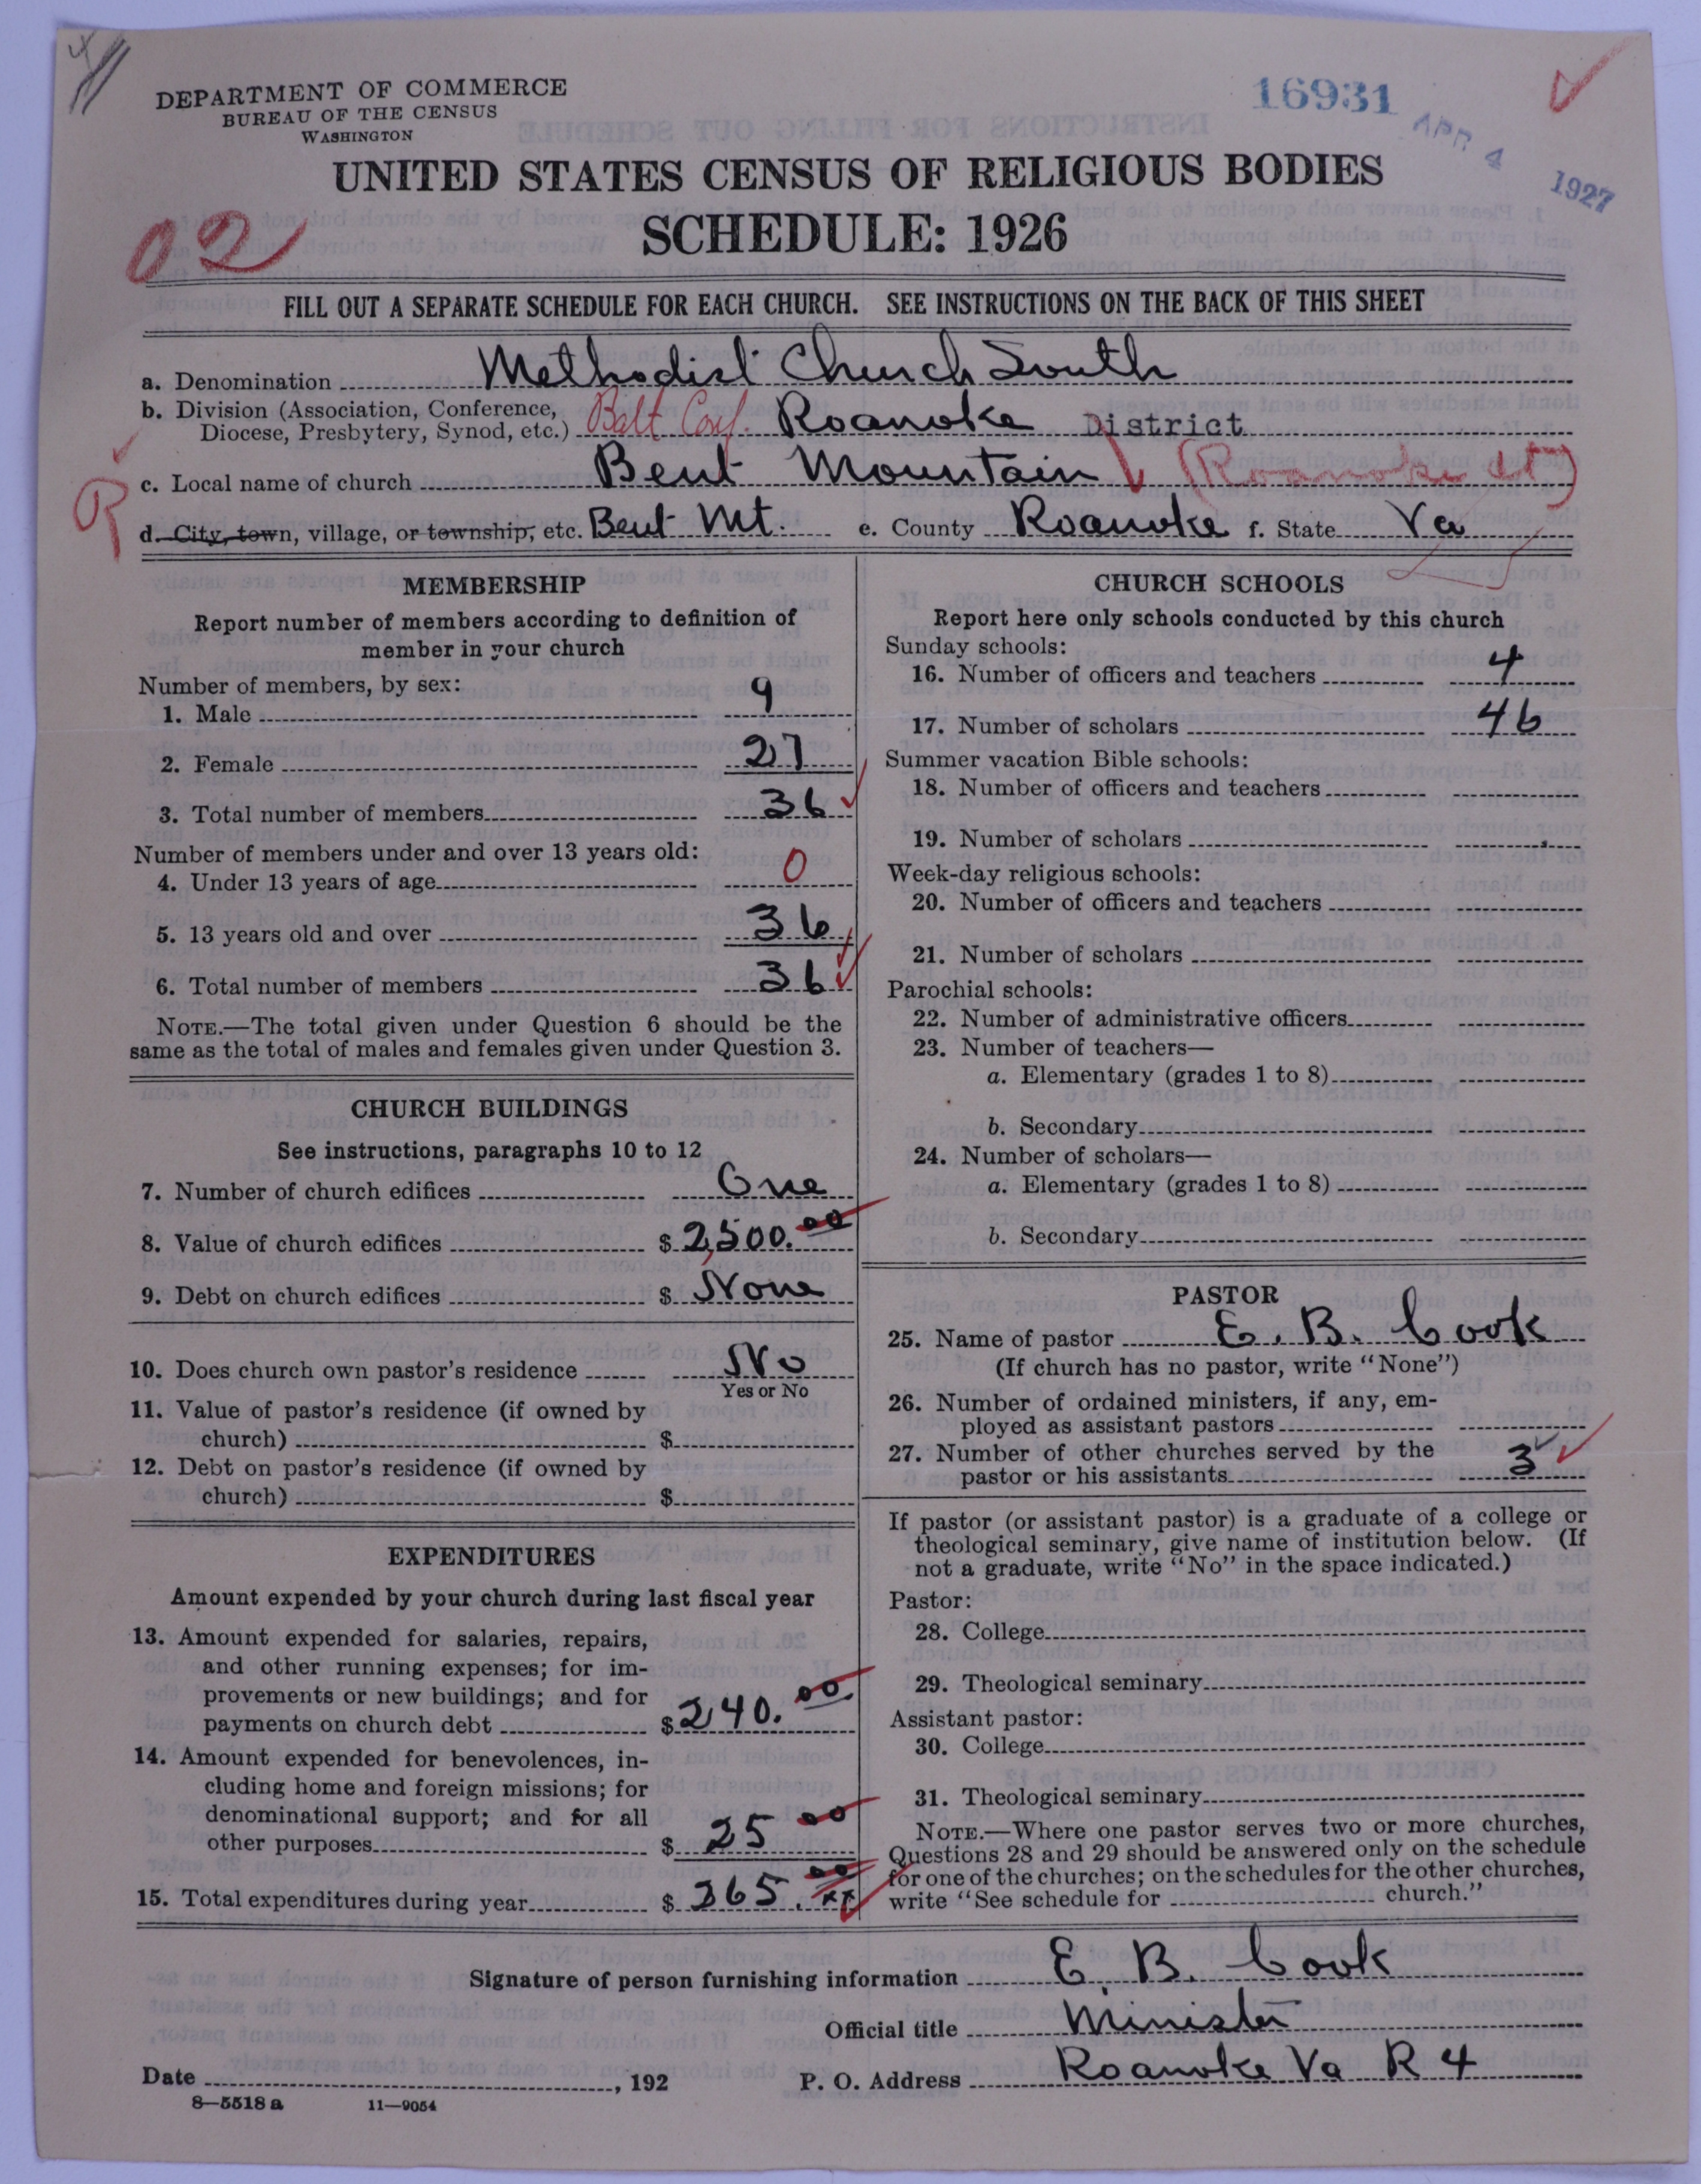 DEPARTMENT OF COMMERCE
BUREAU OF THE CENSUS
WASHINGTON
16931
APR 4 1927
UNITED STATES CENSUS OF RELIGIOUS BODIES
SCHEDULE: 1926
02
FILL OUT A SEPARATE SCHEDULE FOR EACH CHURCH. SEE INSTRUCTIONS ON THE BACK OF THIS SHEET
a. Denomination Methodist Church South
b. Division (Association, Conference,
Diocese, Presbytery, Synod, etc.) Balt Conf. Roanoke District
c. Local name of church Bent Mountain (Roanoke dt)
R
d. City, town, village, or township, etc. Bent Mt. e. County Roanoke f. State Va
MEMBERSHIP
Report number of members according to definition of
member in your church
Number of members, by sex:
1. Male 9
2. Female 27
3. Total number of members 36
Number of members under and over 13 years old:
4. Under 13 years of age 0
5. 13 years old and over 36
6. Total number of members 36
NOTE.—The total given under Question 6 should be the
same as the total of males and females given under Question 3.
CHURCH BUILDINGS
See instructions, paragraphs 10 to 12
7. Number of church edifices One
8. Value of church edifices $ 2,500.00
9. Debt on church edifices $ None
10. Does church own pastor's residence No
Yes or No
11. Value of pastor's residence (if owned by
church) $
12. Debt on pastor's residence (if owned by
church) $
EXPENDITURES
Amount expended by your church during last fiscal year
13. Amount expended for salaries, repairs,
and other running expenses; for im-
provements or new buildings; and for
payments on church debt $ 240.00
14. Amount expended for benevolences, in-
cluding home and foreign missions; for
denominational support; and for all
other purposes $ 25 00
15. Total expenditures during year $ 265.00 xx
CHURCH SCHOOLS
Report here only schools conducted by this church
Sunday schools:
16. Number of officers and teachers 4
17. Number of scholars 46
Summer vacation Bible schools:
18. Number of officers and teachers
19. Number of scholars
Week-day religious schools:
20. Number of officers and teachers
21. Number of scholars
Parochial schools:
22. Number of administrative officers
23. Number of teachers—
a. Elementary (grades 1 to 8)
b. Secondary
24. Number of scholars—
a. Elementary (grades 1 to 8)
b. Secondary
PASTOR
25. Name of pastor E. B. Cook
(If church has no pastor, write "None")
26. Number of ordained ministers, if any, em-
ployed as assistant pastors
27. Number of other churches served by the
pastor or his assistants 3
If pastor (or assistant pastor) is a graduate of a college or
theological seminary, give name of institution below. (If
not a graduate, write "No" in the space indicated.)
Pastor:
28. College
29. Theological seminary
Assistant pastor:
30. College
31. Theological seminary
NOTE.—Where one pastor serves two or more churches,
Questions 28 and 29 should be answered only on the schedule
for one of the churches; on the schedules for the other churches,
write "See schedule for church."
Signature of person furnishing information E. B. Cook
Official title Minister
Date , 192 P. O. Address Roanoke Va R 4
8—5518 a 11—9054